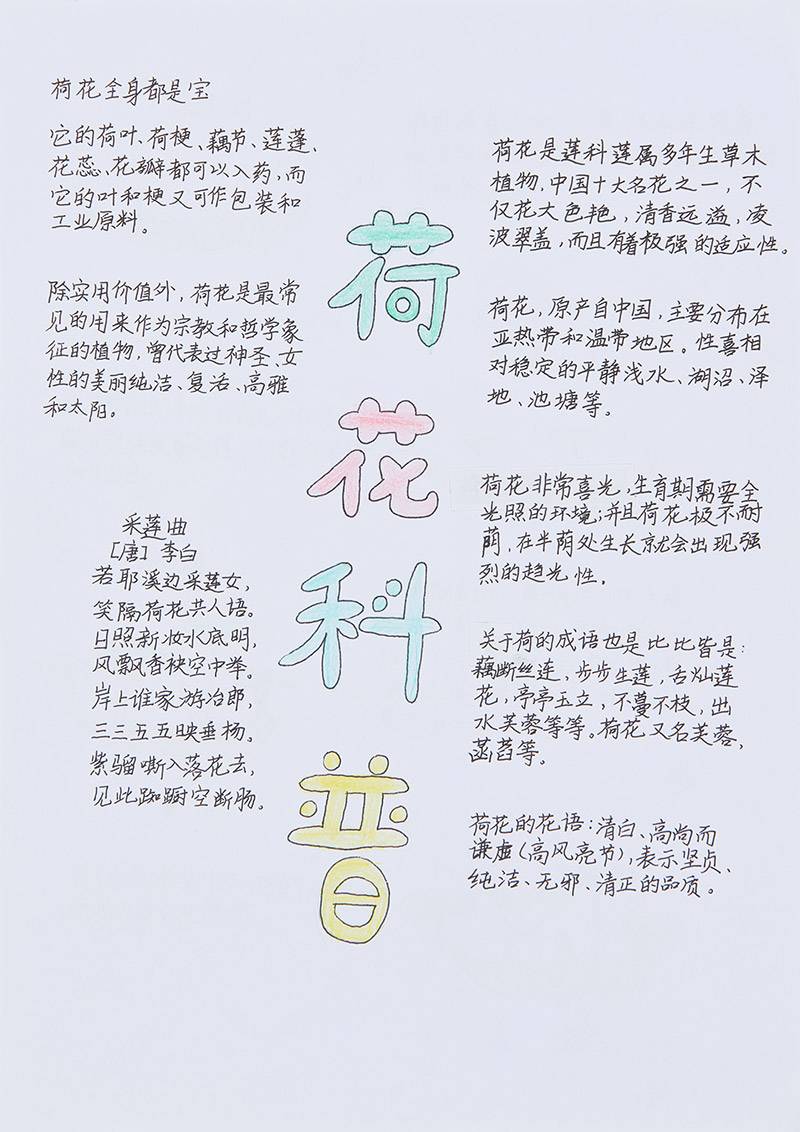 荷花全身都是宝
它的荷叶、荷梗、藕节、莲蓬、
花蕊、花瓣都可以入药，而
它的叶和梗又可作包装和
工业原料。
除实用价值外，荷花是最常
见的用来作为宗教和哲学象
征的植物，曾代表过神圣、女
性的美丽纯洁、复活、高雅
和太阳。
采莲曲
[唐] 李白
若耶溪边采莲女，
笑隔荷花共人语。
日照新妆水底明，
风飘香袂空中举。
岸上谁家游冶郎，
三三五五映垂杨。
紫骝嘶入落花去，
见此踟蹰空断肠。
荷
花
科
普
荷花是莲科莲属多年生草木
植物，中国十大名花之一，不
仅花大色艳，清香远溢，凌
波翠盖，而且有着极强的适应性。
荷花，原产自中国，主要分布在
亚热带和温带地区。性喜相
对稳定的平静浅水、湖沼、泽
地、池塘等。
荷花非常喜光，生育期需要全
光照的环境；并且荷花极不耐
荫，在半荫处生长就会出现强
烈的趋光性。
关于荷的成语也是比比皆是：
藕断丝连，步步生莲，舌灿莲
花，亭亭玉立，不蔓不枝，出
水芙蓉等等。荷花又名芙蓉，
菡萏等。
荷花的花语：清白、高尚而
谦虚（高风亮节），表示坚贞、
纯洁、无邪、清正的品质。